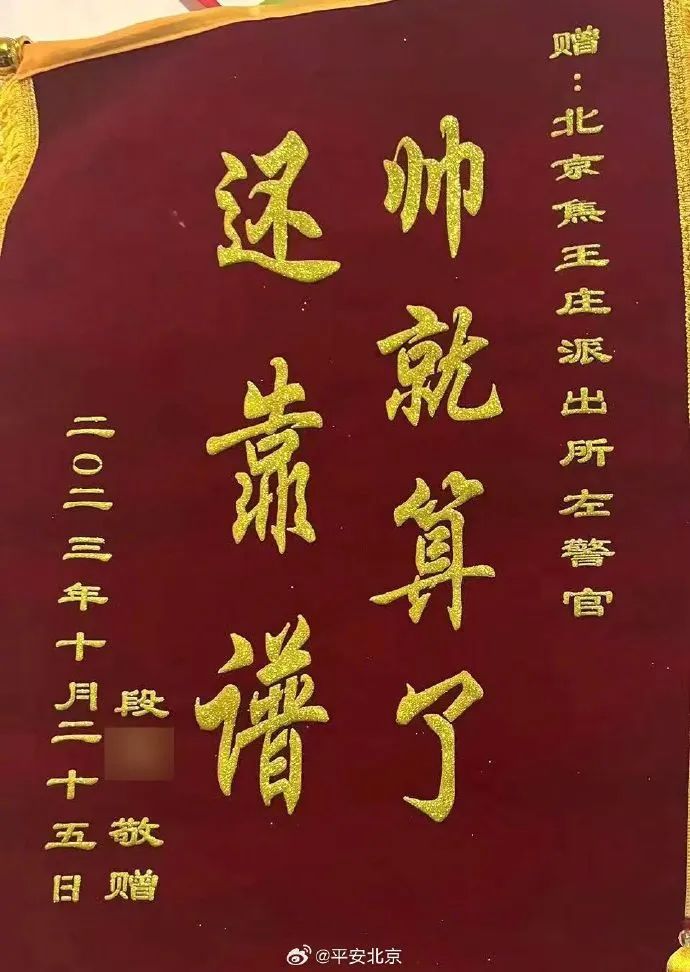 赠：北京焦王庄派出所左警官
帅就算了
还靠谱
段 敬赠
二〇二三年十月二十五日
@平安北京